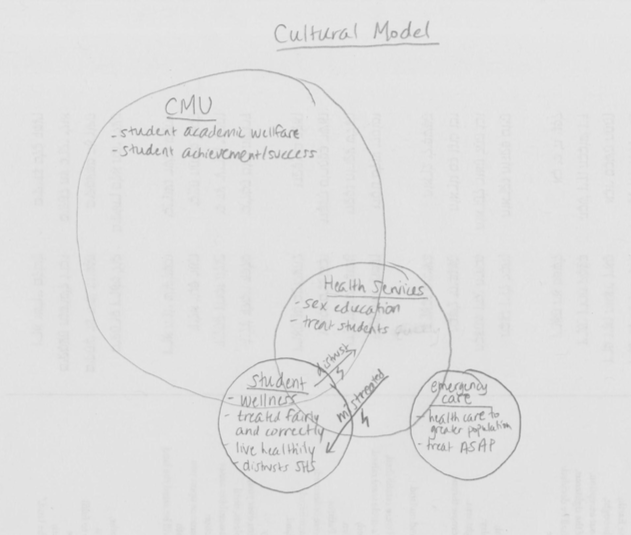 Cultural Model
CMU
- student academic wellfare
- student achievement/success
Health Services
- sex education
- treat students
distrust
mistreated
Student
- wellness
- treated fairly
and correctly
- live healthily
- distrusts SHS
emergency
care
- health care to
greater population
- treat ASAP